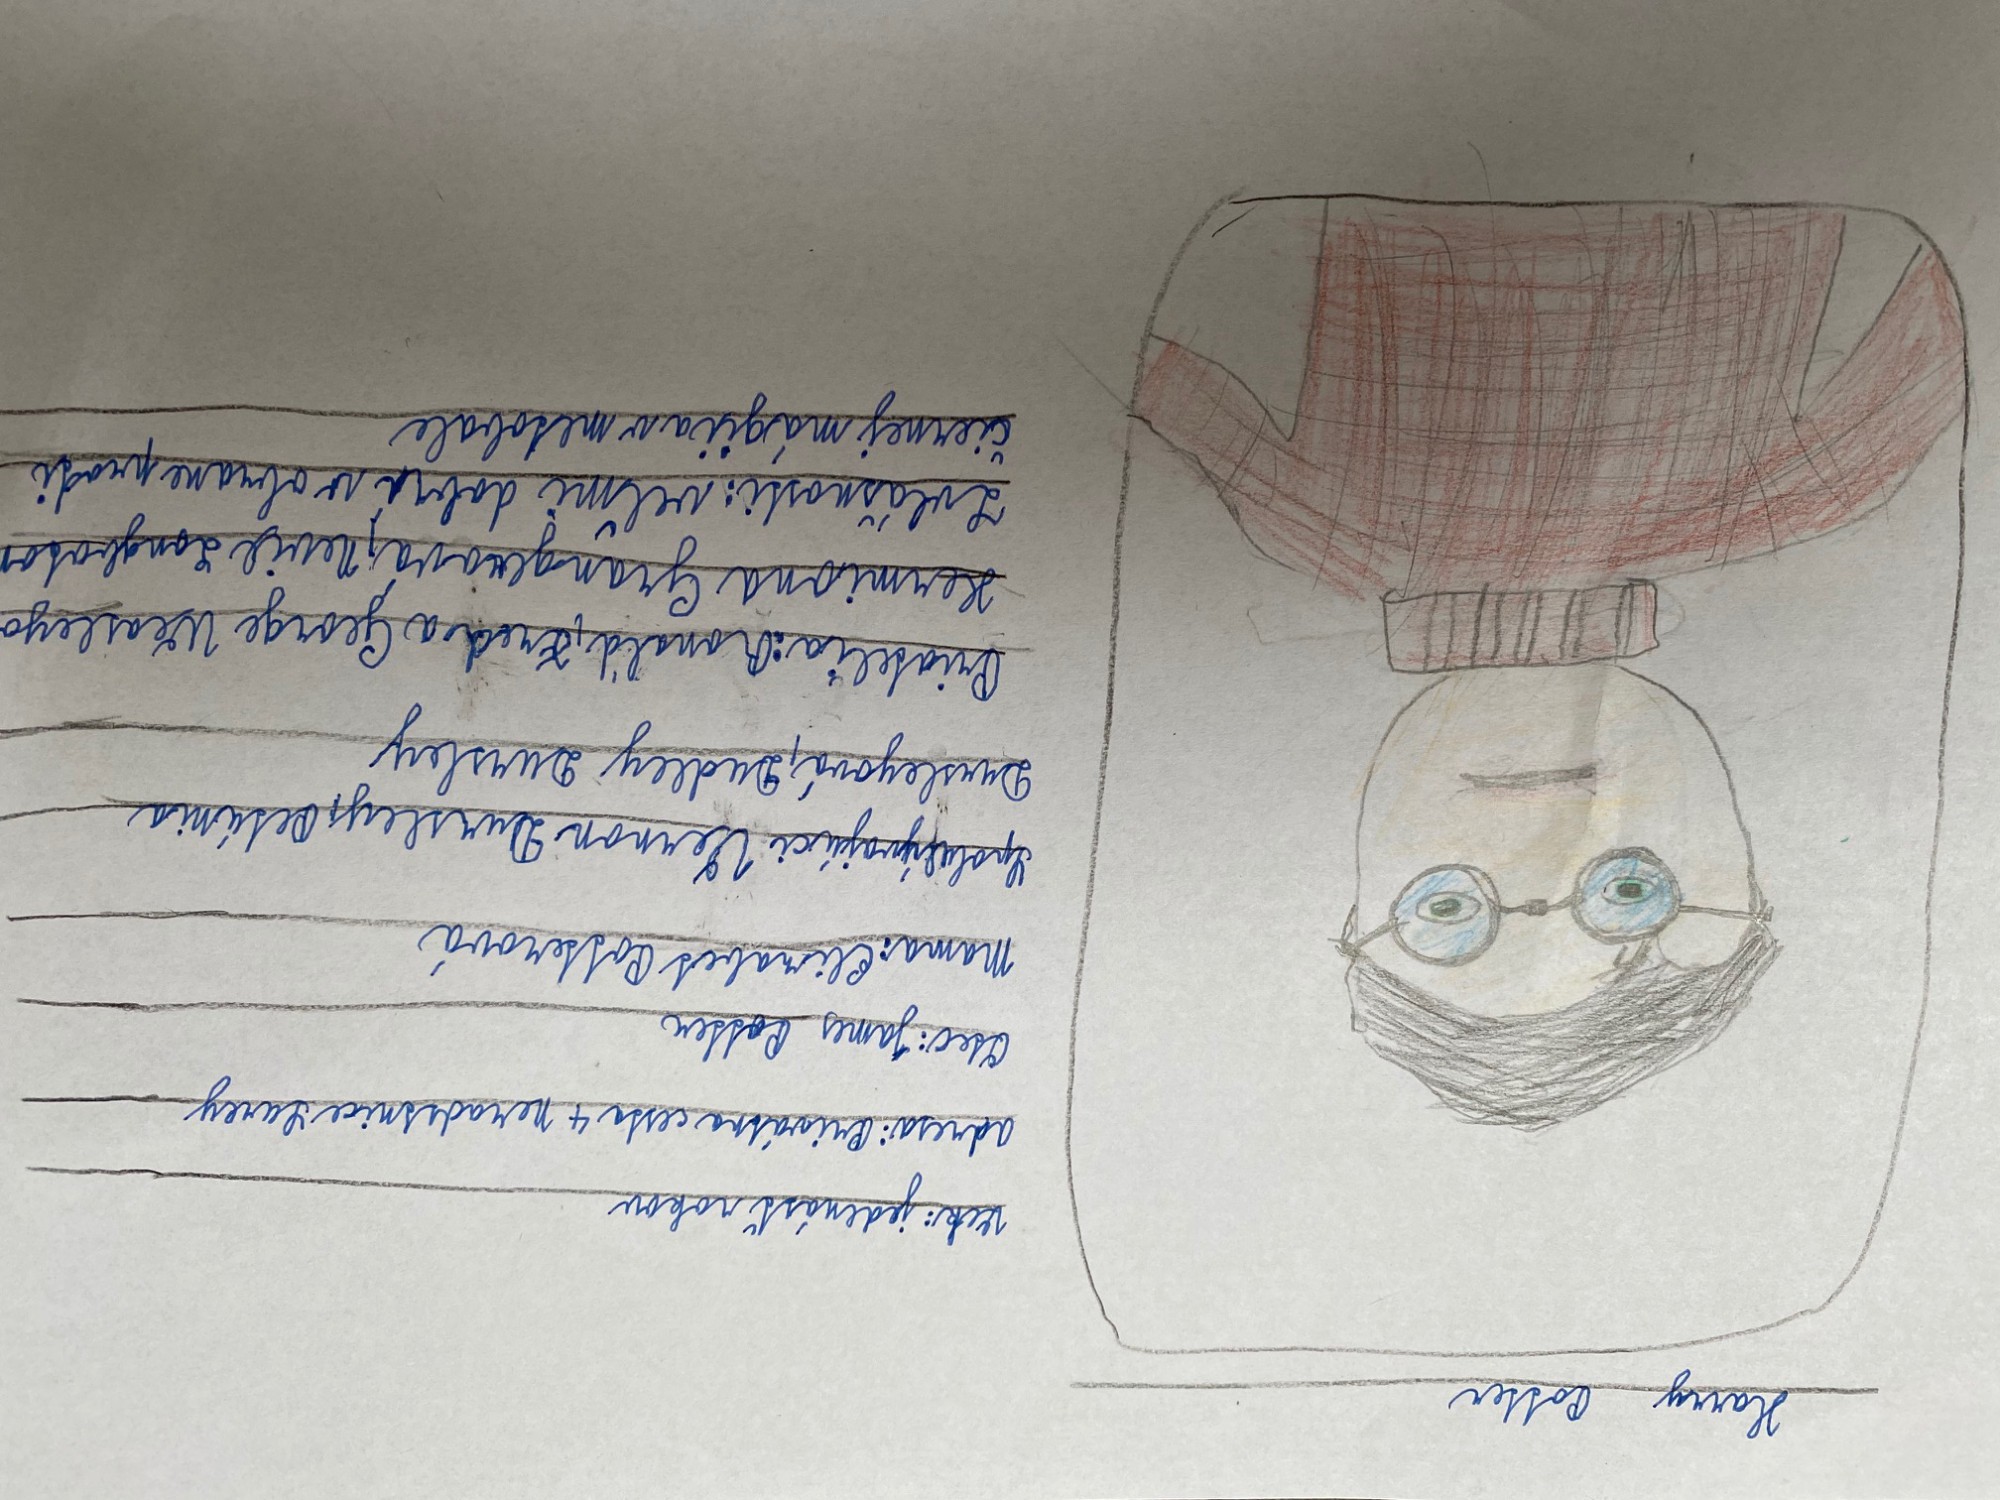 Harry Potter
Vek: jedenásť rokov
adresa: Privátna cesta 4 Neradstnice Surrey
Otec: James Potter
Mama: Elizabet Potterová
Spolužívajúci: Vernon Dursley, Petúnia
Dursleyová, Dudley Dursley
Priatelia: Ronald, Fred a George Weasleyo
Hermiona Grangerová, Nevil Longbotom
Zvlášnosti: veľmi dobrá v obrane proti
čiernej mágii a v metobale